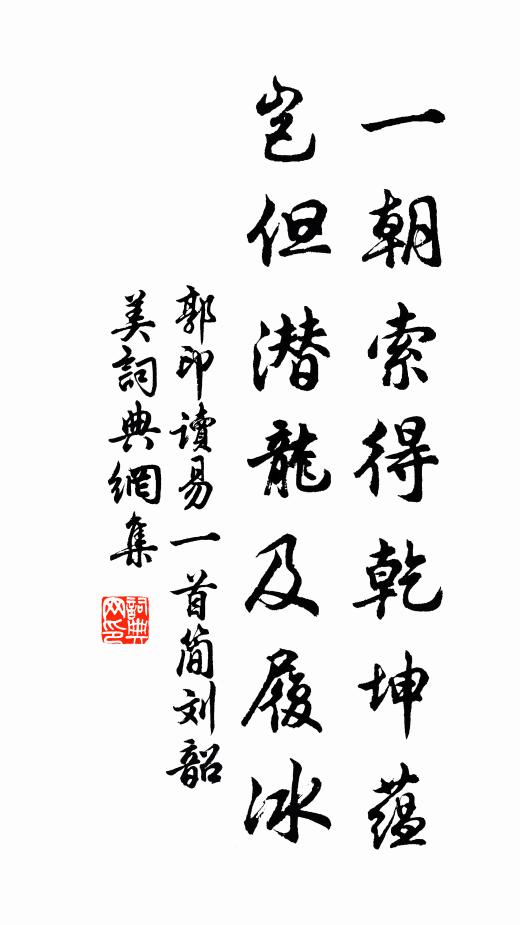 一朝索得乾坤蕴
岂但潜龍及履冰
郭印讀易一首简刘韶
美詞典網集
詞典
网印